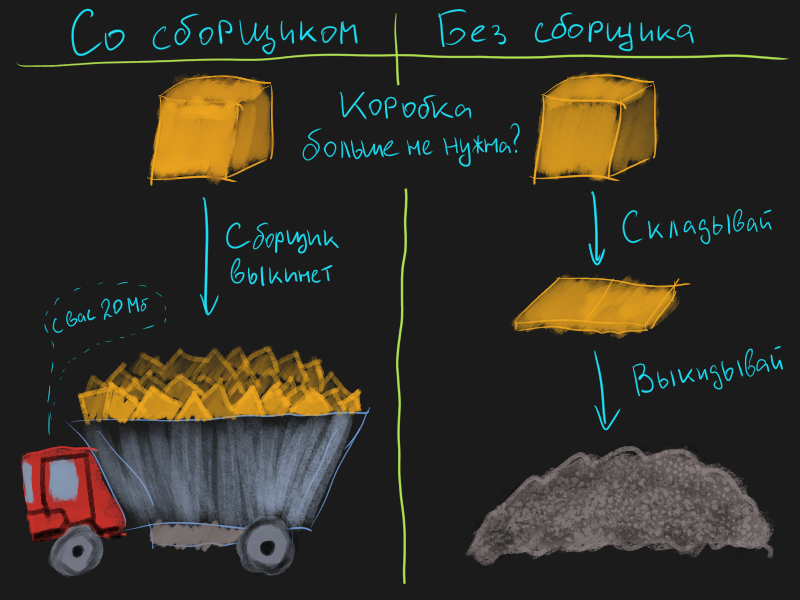 Со сборщиком
Без сборщика
Коробка
больше не нужна?
Сборщик
выкинет
Складывай
с вас 20 Мб
Выкидывай